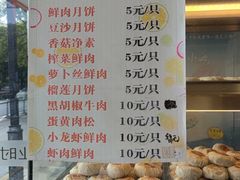 鲜肉月饼 5元/只
豆沙月饼 5元/只
香菇净素 5元/只
榨菜鲜肉 5元/只
萝卜丝鲜肉 5元/只
榴莲月饼 5元/只
黑胡椒牛肉 10元/只
蛋黄肉松 10元/只
小龙虾鲜肉 10元/只
虾肉鲜肉 10元/只